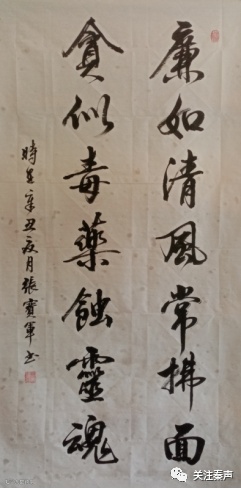 廉如清風常拂面
貪似毒藥蝕靈魂
時在辛丑夏月張寶軍书
关注秦声